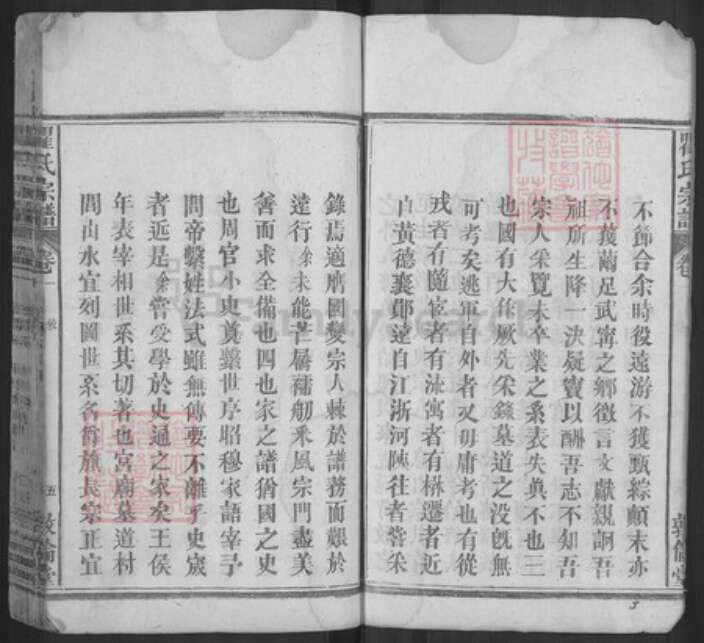 不節合余時役遠游不獲甄綜顛末亦
不獲繭足武寧之鄉徵言文獻親詗吾
祖所生降一決疑竇以酬吾志不知吾
宗人采覽未卒業之系表失眞不也三
也國有大作厥先采錄墓道之没旣無
可考矣逃軍自外者又毋庸考也有從
戎者有隨宦者有流寓者有栟遷者近
自黃德襄鄖遠自江浙河陝往者嘗采
錄焉適膺國變宗人棘於譜務而艱於
遠行余未能芒屩孺舠釆風宗門盡美
善而求全備也四也家之譜猶國之史
也周官小史奠繫世序昭穆家語宰予
問帝繫姓法式雖無傳要不離乎史宬
者近是余嘗受學於史通之家矣王侯
年表宰相世系其切著也宮廟墓道村
閭山水宜列圖世系名爵旗長宗正宜
氏宗譜
卷一
五
敦倫堂